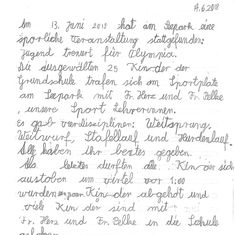 14.6.2012
Am 13. Juni 2012 hat am Seepark eine
sportliche Veranstaltung stattgefunden:
Jugend treniert für Olympia.
Die ausgewälten 25 Kinder der
Grundschule trafen sich am Sportplatz
am Seepark mit Fr. Henz und Fr. Felke
, unsere Sport Lehrerinnen.
Es gab vier diszieplinen: Weitsprung,
Weitwurf, Stafellauf und Hürdenlauf.
Alle haben ihr bestes gegeben.
Als letztes durften die Kinder sich
austoben um virtel vor 1:00
wurden Kinder abgeholt und
viele Kinder sind mit
Fr. Henz und Fr. Felke in die Schule